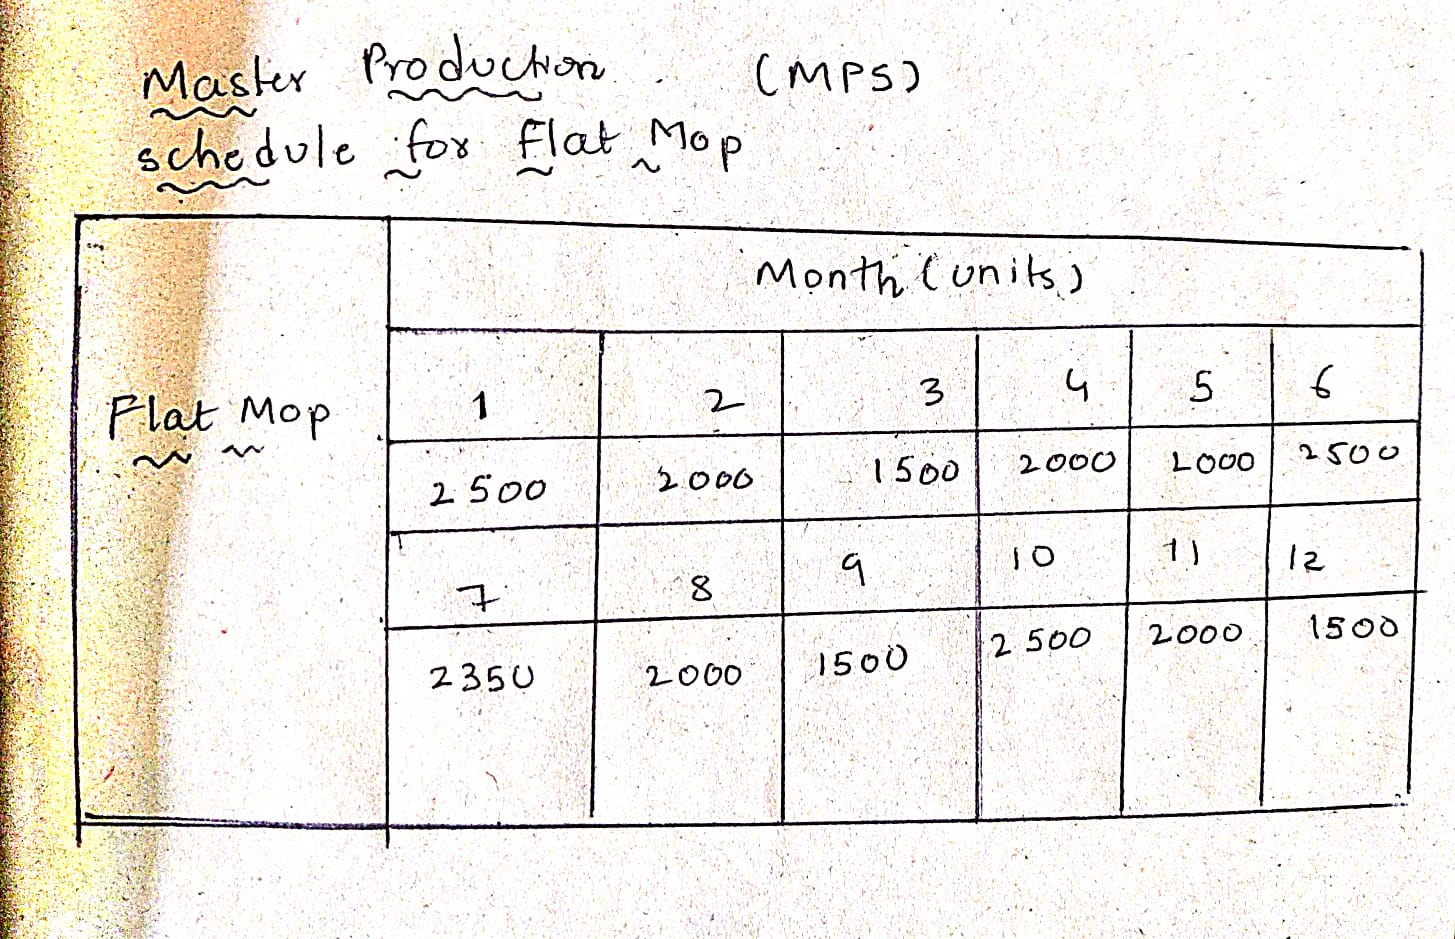 Master Production (MPS)
schedule for Flat Mop
Month (units)
Flat Mop
1 2 3 4 5 6
2500 2000 1500 2000 2000 2500
7 8 9 10 11 12
2350 2000 1500 2500 2000 1500